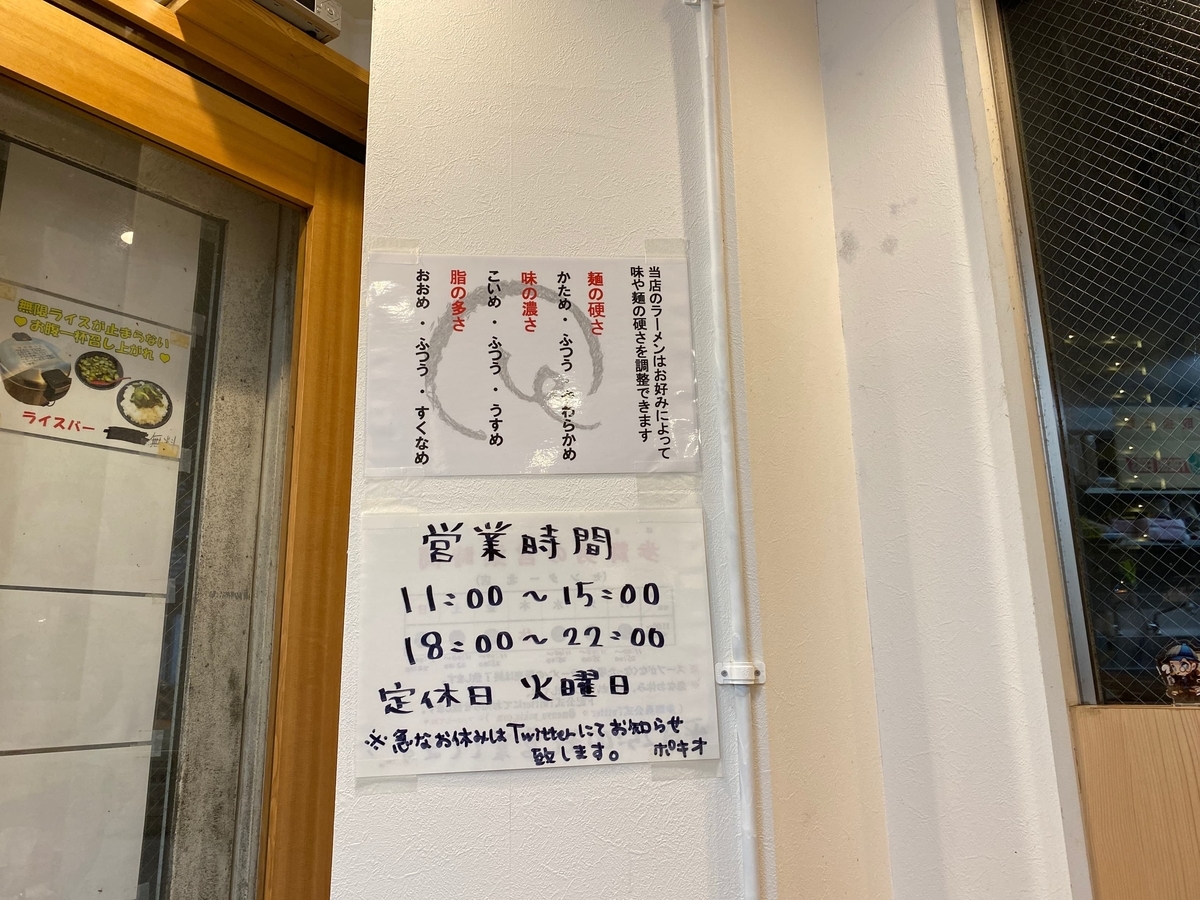 無限ライスが止まらない
お腹一杯召し上がれ
ライスバー
無料
当店のラーメンはお好みによって
味や麺の硬さを調整できます
麺の硬さ
かため・ふつう・やわらかめ
味の濃さ
こいめ・ふつう・うすめ
脂の多さ
おおめ・ふつう・すくなめ
営業時間
11:00～15:00
18:00～22:00
定休日 火曜日
※急なお休みはTwitterにてお知らせ
致します。 ポキオ